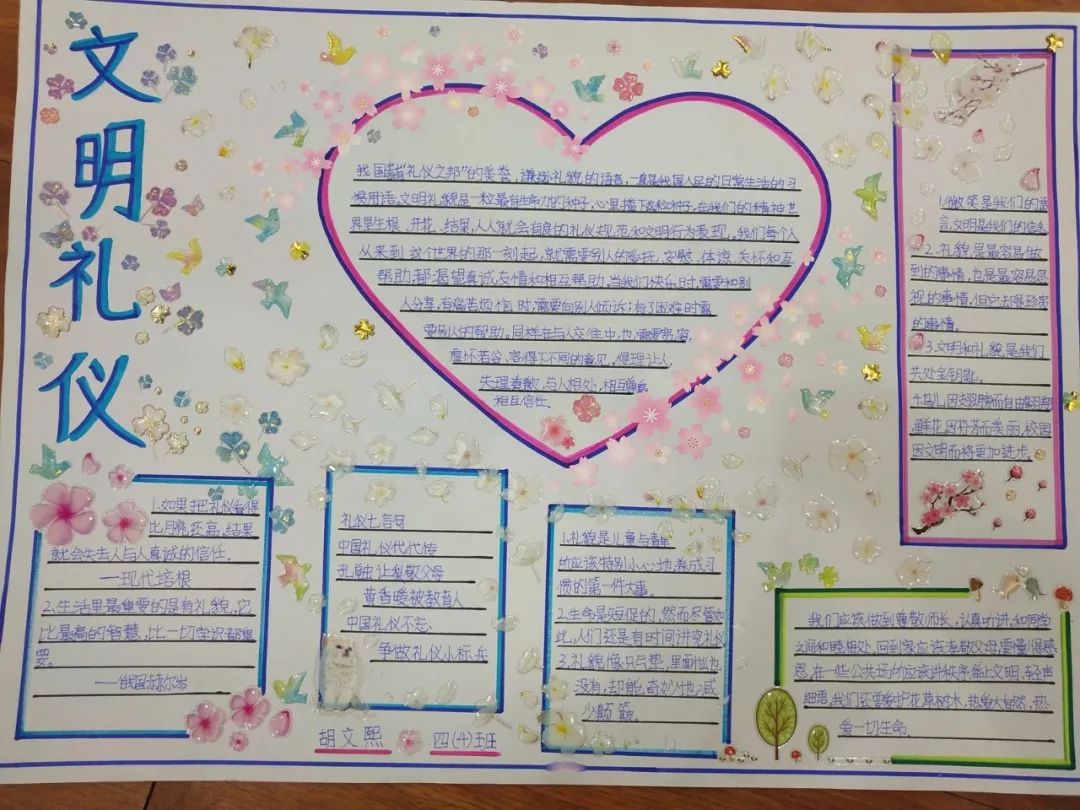 文明礼仪
我国素有"礼仪之邦"的美誉，谦逊礼貌的语言，一直是我国人民的日常生活的习
惯用语。文明礼貌是一粒最有生命力的种子，心里播下这粒种子，在我们的精神世
界里生根、开花、结果，人人就会有良的礼仪规范和文明行为表现。我们每个人
从来到这个世界的那一刻起，就需要别人的呵护、安慰、体谅、关怀和互
帮助，都渴望真诚友情和相互帮助。当我们快乐时，需要和别
人分享，有痛苦烦恼时，需要向别人倾诉；有了困难时需
要别人的帮助。同样在与人交往中，也需要宽容，
虚怀若谷，容得下不同的意见。得理让人，
失理道歉，与人相处，相互尊重，
相互信任。
1.微笑是我们的语
言，文明是我们的信念
2.礼貌是最容易做
到的事情，也是最容易忽
视的事情，但它却是珍贵
的事情。
3.文明和礼貌，是我们
共处金钥匙。
4.鸟儿因翅膀而自由翱翔
，鲜花因芬芳而美丽，校园
因文明而将更加进步。
1.如果把礼仪看得
比月亮还高，结果
就会失去人与人真诚的信任。
——现代培根
2、生活里最重要的是有礼貌，它
比最高的智慧，比一切学识都重
要。
——俄国赫尔岑
礼仪七言句
中国礼仪代代传
孔融让梨敬父母
黄香暖被教育人
中国礼仪不忘
争做礼仪小标兵
胡文熙 四(4)班
1.礼貌是儿童与青年
的应该特别小心地养成习
惯的第一件大事。
2.生命是短促的，然而尽管如
此，人们还是有时间讲究礼仪
3.礼貌像只气垫，里面什么也
没有，却能奇妙地减
少颠簸。
我们应该做到尊敬师长，认真听讲，和同学
之间和睦相处，回到家应该孝敬父母，要懂得感
恩，在一些公共场的应该讲秩序举止文明，轻声
细语，我们还要爱护花草树木，热爱大自然，热
爱一切生命。